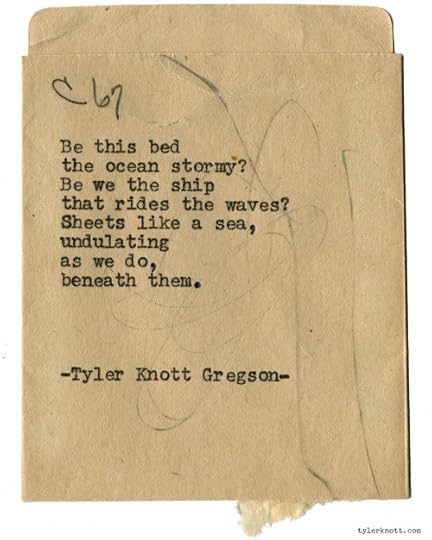 C 67
Be this bed
the ocean stormy?
Be we the ship
that rides the waves?
Sheets like a sea,
undulating
as we do,
beneath them.
-Tyler Knott Gregson-
tylerknott.com